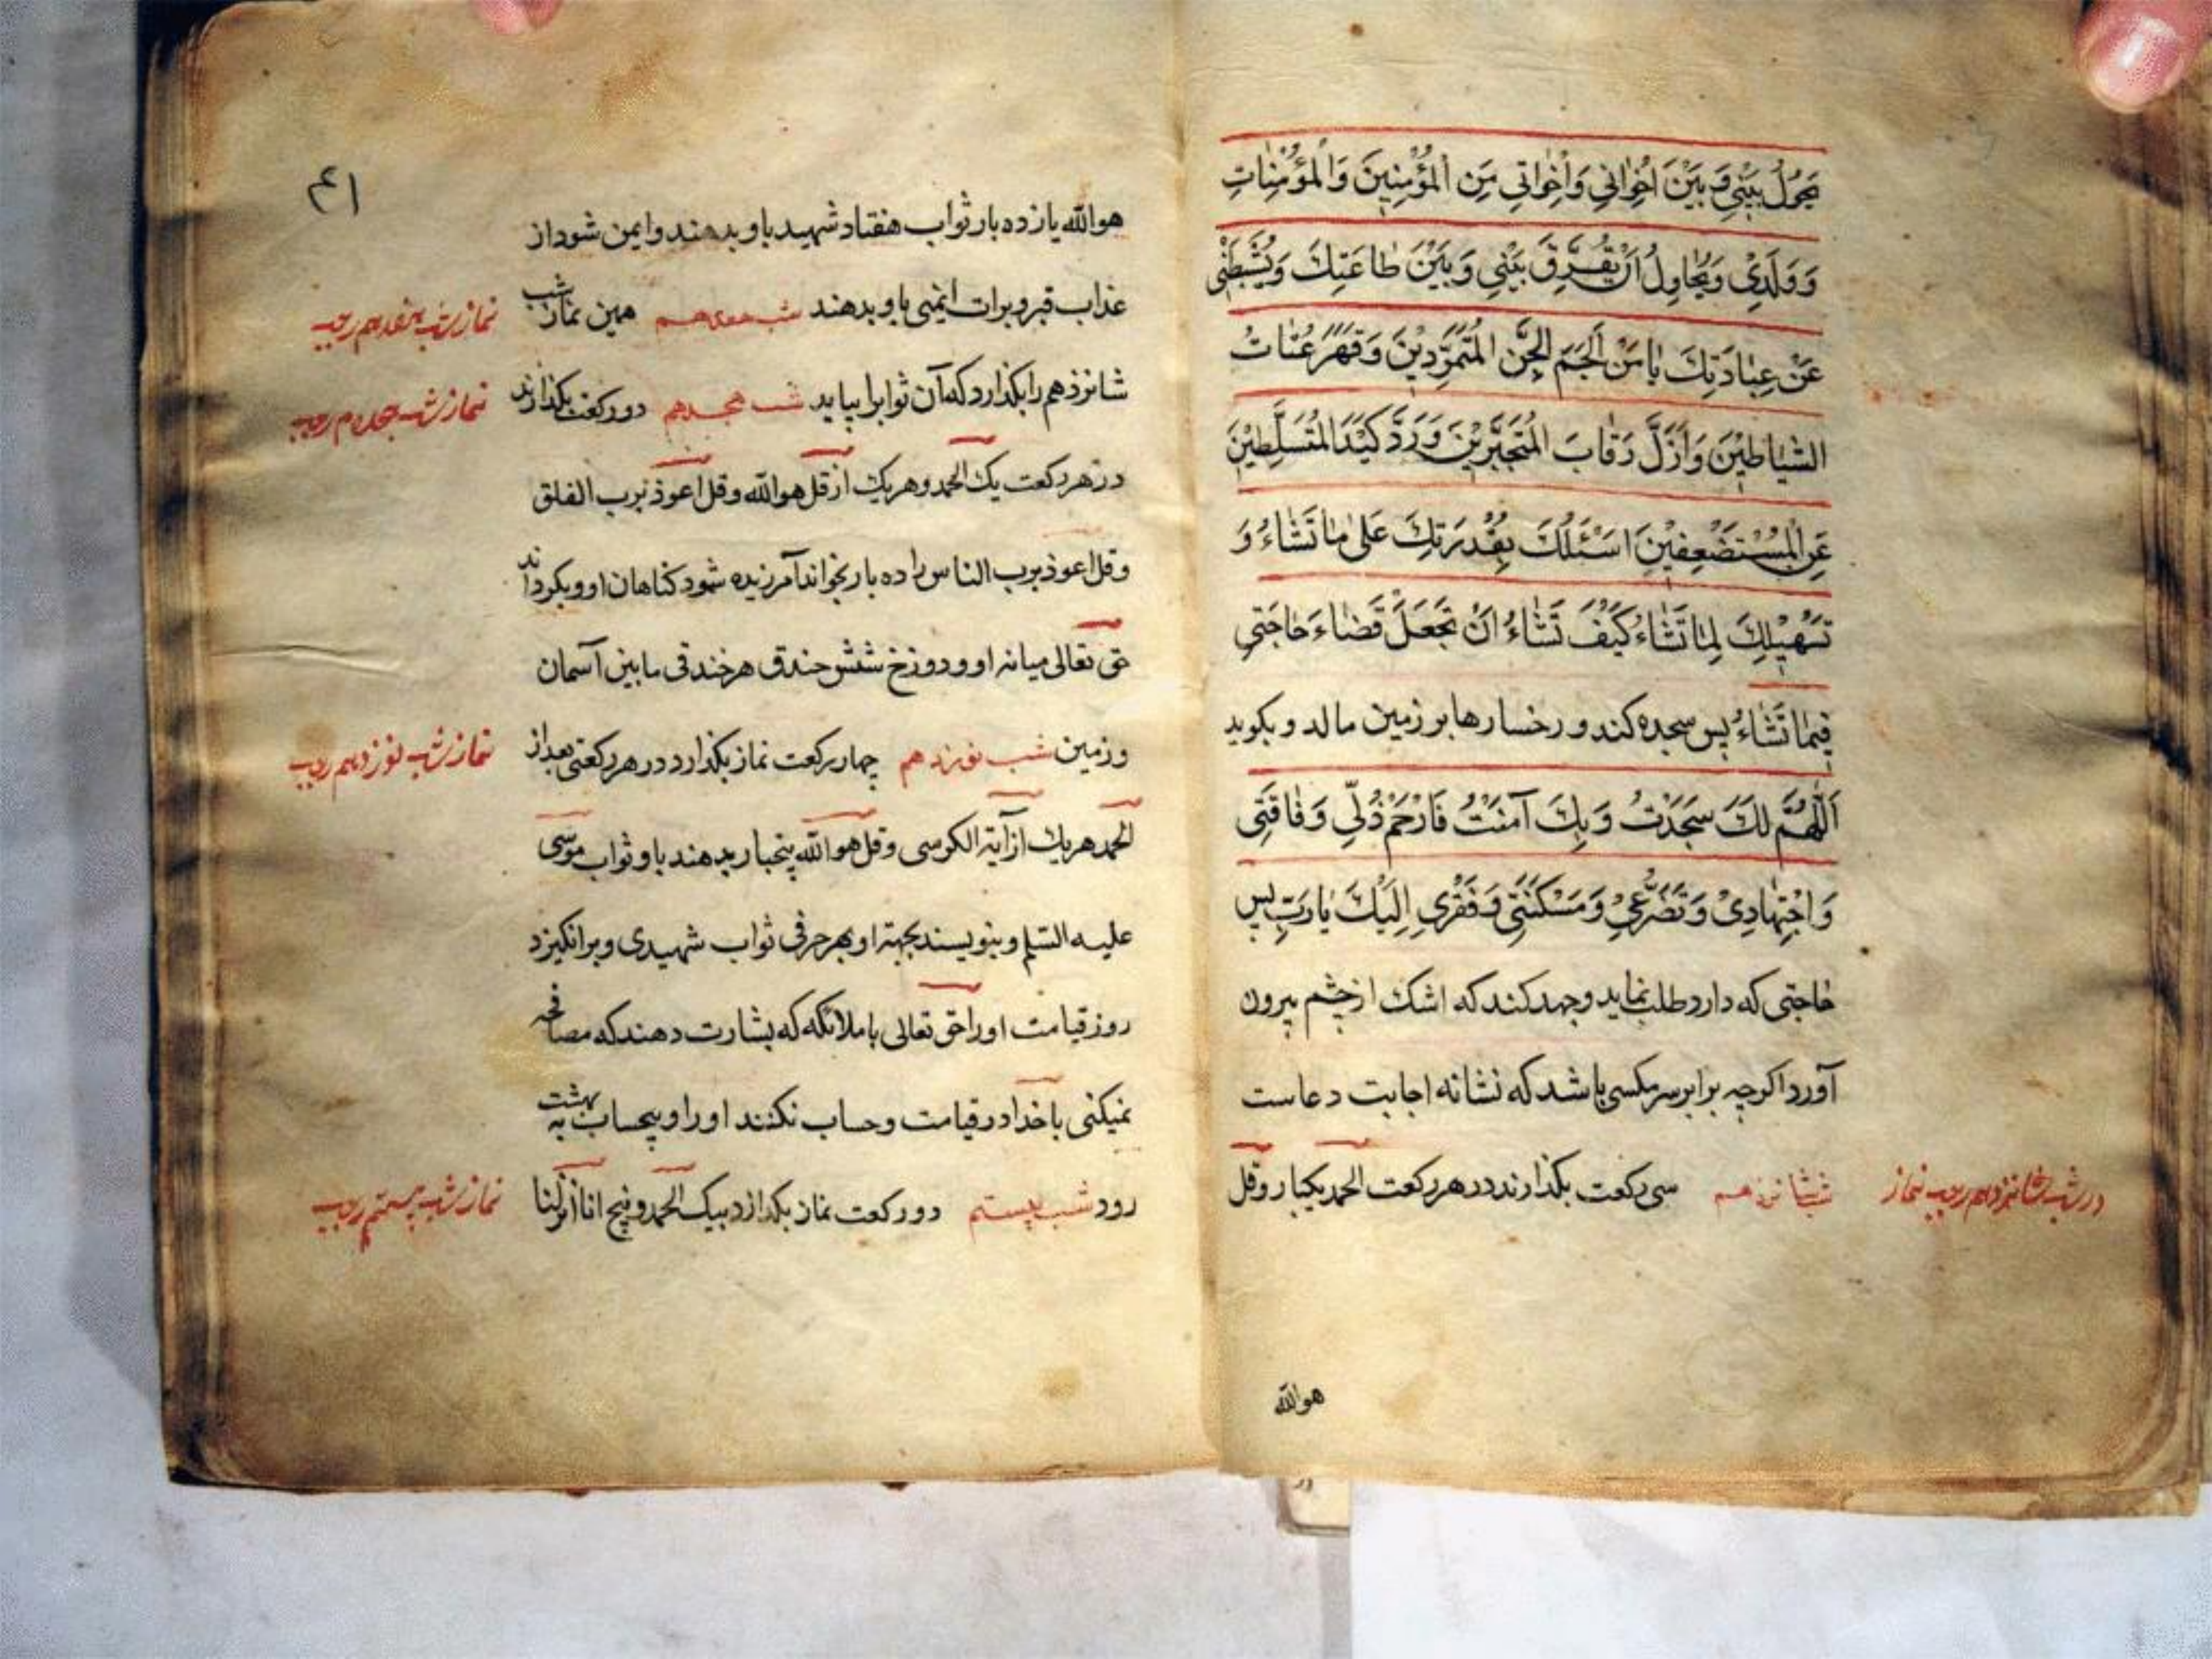 يَحُولُ بَيْنِي وَبَيْنَ اِخْوانِي وَاَخَواتِي مِنَ الْمُؤْمِنِينَ وَالْمُؤْمِناتِ
وَوَلَدِي وَيُحاوِلُ اَنْ يُفَرِّقَ بَيْنِي وَبَيْنَ طاعَتِكَ وَيُثَبِّطَنِي
عَنْ عِبادَتِكَ يا مَنْ اَلْجَمَ الْجِنَّ الْمُتَمَرِّدِيْنَ وَقَهَرَ عُتاتَ
الشَّياطِيْنَ وَاَذَلَّ رِقابَ الْمُتَجَبِّرِيْنَ وَرَدَّ كَيْدَ الْمُتَسَلِّطِيْنَ
عَنِ الْمُسْتَضْعِفِيْنَ اَسْئَلُكَ بِقُدْرَتِكَ عَلى ما تَشاءُ وَ
تَسْهِيْلِكَ لِما تَشاءُ كَيْفَ تَشاءُ اَنْ تَجْعَلَ قَضاءَ حاجَتِي
فِيْما تَشاءُ پس سجده كند و رخسارها بر زمين مالد و بكويد
اَللّهُمَّ لَكَ سَجَدْتُ وَبِكَ آمَنْتُ فَارْحَمْ ذُلِّي وَفاقَتِي
وَاجْتِهادِيْ وَتَضَرُّعِيْ وَمَسْكَنَتِي وَفَقْرِي اِلَيْكَ يا رَبِّ پس
حاجتى كه دارد طلب نمايد و جهد كند كه اشك از چشم بيرون
آورد اكرچه برابر سر مكسى باشد كه نشانه اجابت دعاست
در شب شانزدهم رجب نماز
شب شانزدهم سى ركعت بكذارند در هر ركعت الحمد يكبار و قل
هو الله
۴۱
هو الله يازده بار ثواب هفتاد شهيد باو بدهند و ايمن شود از
عذاب قبر و برات ايمنى باو بدهند شب هفدهم همين نماز شب
نماز شب هفدهم رجب
شانزدهم را بكذارد كه آن ثوابرا بيابد شب هجدهم دو ركعت بكذارند
نماز شب هجدهم رجب
در هر ركعت يك الحمد و هريك از قل هو الله و قل اعوذ برب الفلق
و قل اعوذ برب الناس را ده بار بخواند آمرزيده شود كناهان او و بكرداند
حق تعالى ميانه او و دوزخ شش خندق هر خندقى ما بين آسمان
و زمين شب نوزدهم چهار ركعت نماز بكذارد در هر ركعتى بعد از
نماز شب نوزدهم رجب
الحمد هريك از آية الكرسى و قل هو الله پنجبار بدهند باو ثواب موسى
عليه السلم و بنويسند بجهته او بهر حرفى ثواب شهيدى و برانكيزد
روز قيامت او را حق تعالى با ملائكه كه بشارت دهند كه مصافحه
نميكنى با خدا در قيامت و حساب نكنند او را و بيحساب به بهشت
رود شب بيستم دو ركعت نماز بكذارد بيك الحمد و پنج انا انزلنا
نماز شب بيستم رجب